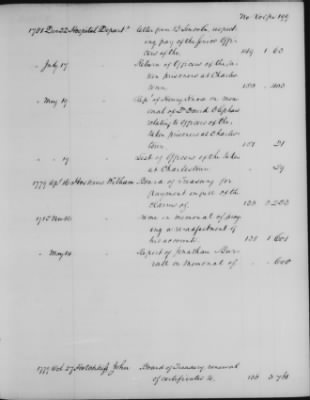 No. Vol. Pa. 199
1781 Dec 22 Hospital Depart. letter from B Lincoln, respect
ing pay of the junior Offi
cers of the 149 1 60
" July 17 " Return of Officers of the ta
ken prisoners at Charles
town. 100
" May 19 " Rept. of Henry on mem
orial of D. David Oliphant
relating to Officers of the
taken prisoners at Charles
town. 151 21
" " 19 " List of Officers of the taken
at Charlestown " 29
William Board of Treasury for
payment in full of the
claims of.
Nov same on memorial of pray
ing a readjustment of
his accounts. 1 601
" May " Report of Jonathan
on Memorial of " 600
1779 Oct 27 Hotchkiss John Board of Treasury, renewal
of certificates to. 136 3 761